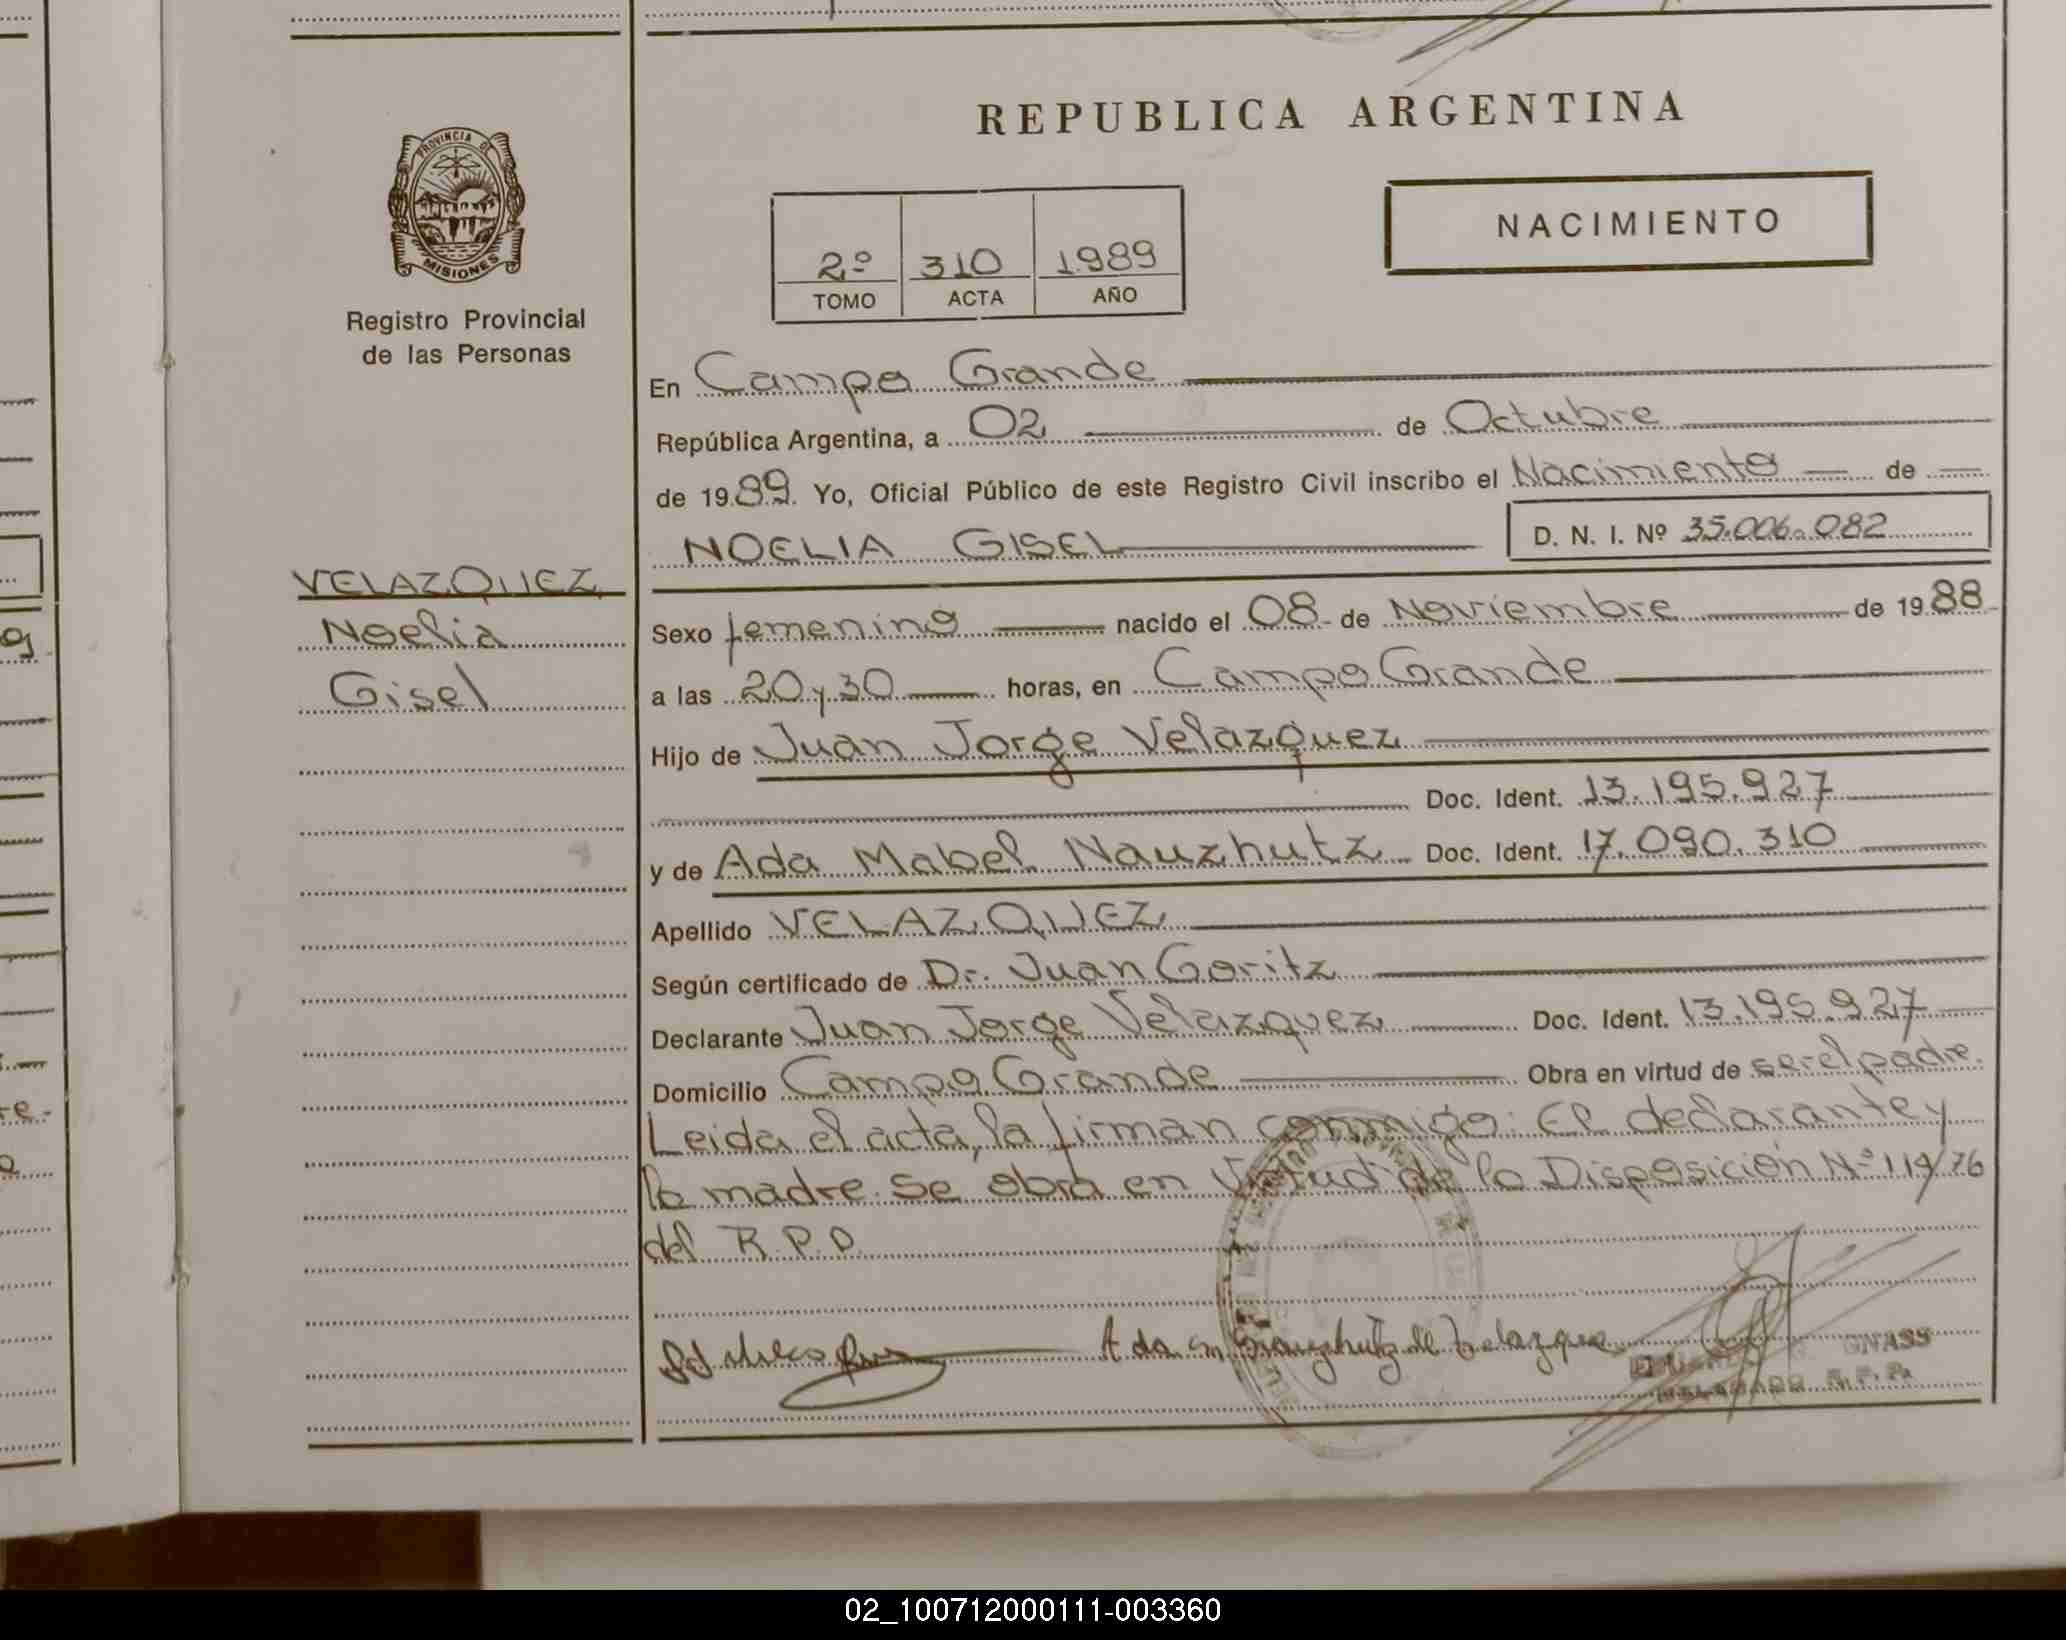 REPUBLICA ARGENTINA
PROVINCIA DE
MISIONES
Registro Provincial
de las Personas
NACIMIENTO
2º 310 1989
TOMO ACTA AÑO
En Campo Grande
República Argentina, a 02 de Octubre
de 1989. Yo, Oficial Público de este Registro Civil inscribo el Nacimiento de
NOELIA GISEL D. N. I. Nº 35.006.082
VELAZQUEZ
Noelia
Gisel
Sexo femenino nacido el 08 de Noviembre de 1988
a las 20 y 30 horas, en Campo Grande
Hijo de Juan Jorge Velazquez
Doc. Ident. 13.195.927
y de Ada Mabel Nauzhutz Doc. Ident. 17.090.310
Apellido VELAZQUEZ
Según certificado de Dr. Juan Goritz
Declarante Juan Jorge Velazquez Doc. Ident. 13.195.927
Domicilio Campo Grande Obra en virtud de ser el padre.
Leida el acta, la firman conmigo: El declarante y
la madre. Se obra en Virtud de la Disposición Nº 119/76
del R.P.P.
Ada m de Velazquez
GNASS
R.P.P.
02_100712000111-003360